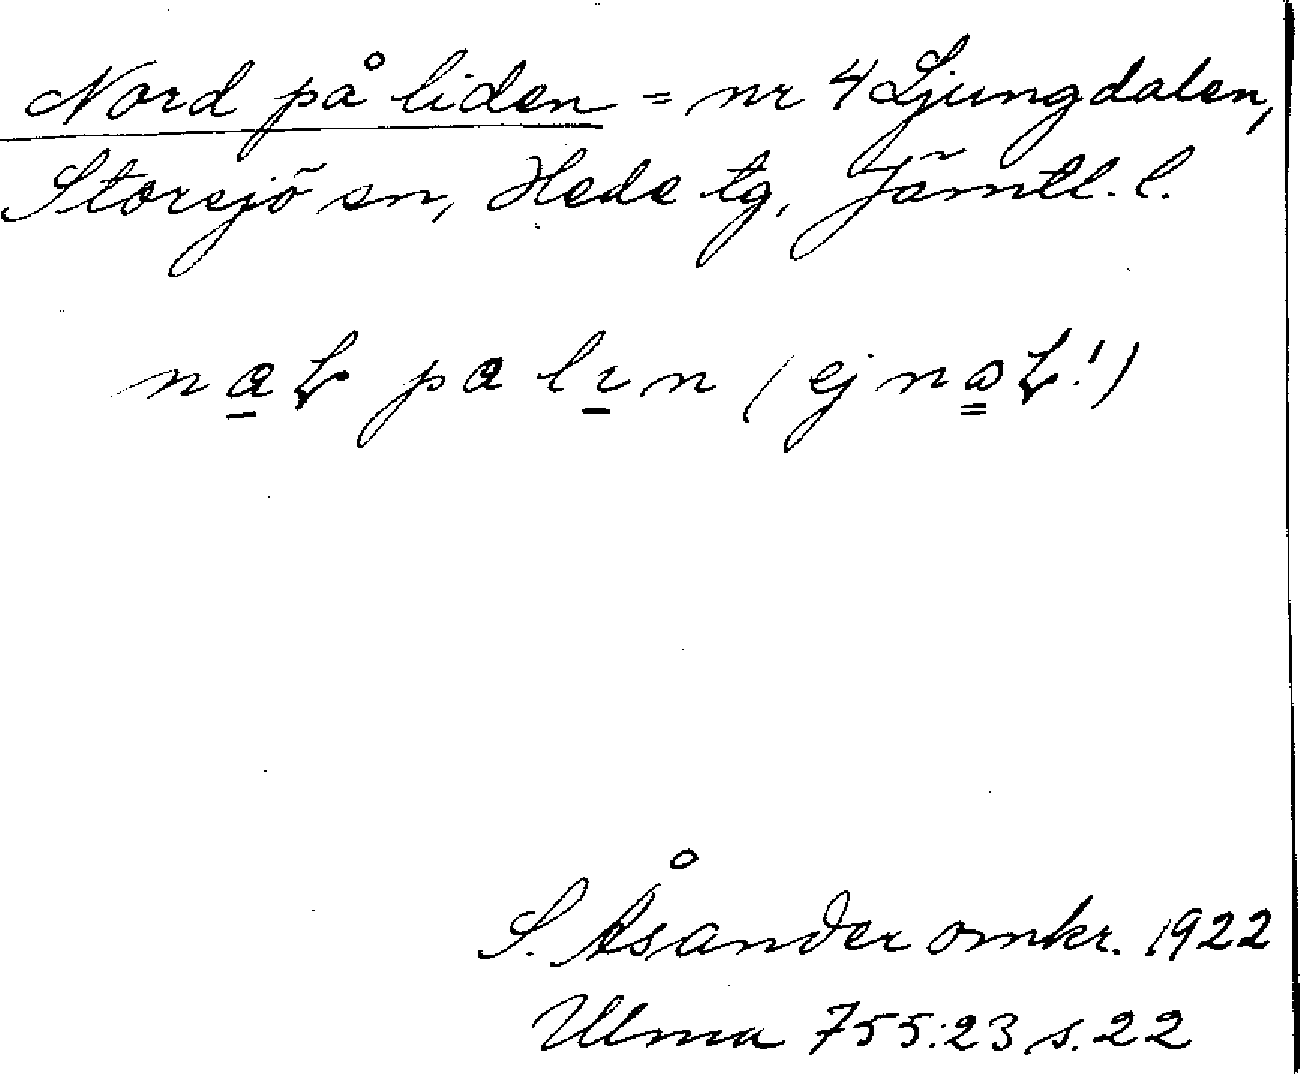 Nord på liden = nr 4 Ljungdalen,
Storsjö sn, Hede tg, Jämtl. l.
S. Åsander omkr. 1922
Ulma 755:23 s. 22